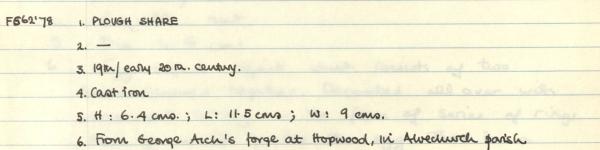 F562'78 1. PLOUGH SHARE
2. —
3. 19th/early 20th. century.
4. Cast iron
5. H: 6.4 cms.; L: 11.5 cms; W: 9 cms.
6. From George Arch's forge at Hopwood, in Alvechurch parish